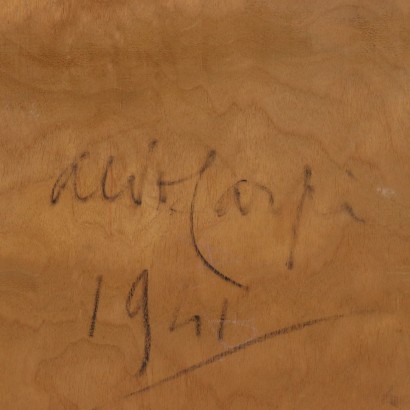 Aldo Carpi
1941